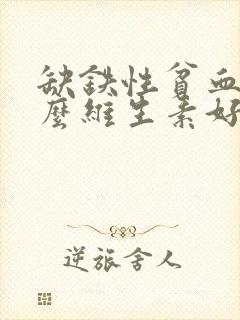 缺鉄性貧血
麼維生素好
逆旅舍人